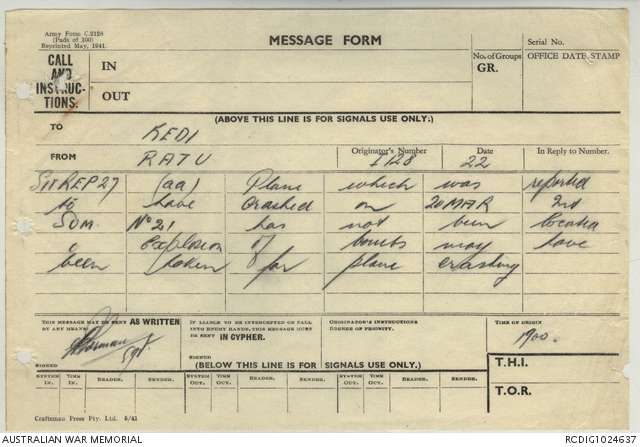 Army Form C.2128
(Pads of 100)
Reprinted May, 1941.
MESSAGE FORM
Serial No.
CALL AND INSTRUC-TIONS.
IN
OUT
No. of Groups
GR.
OFFICE DATE STAMP
(ABOVE THIS LINE IS FOR SIGNALS USE ONLY:)
TO KEDI
FROM RATU
Originator's Number L128
Date 22
In Reply to Number.
SITREP 27 (aa) Plane which was reported
to have crashed on 20 MAR 2nd
SDM. No 21 has not been located
explosion of bombs may have
been taken for plane crashing
THIS MESSAGE MAY BE SENT AS WRITTEN
BY ANY MEANS.
SIGNED Sgt.
IF LIABLE TO BE INTERCEPTED OR FALL
INTO ENEMY HANDS, THIS MESSAGE MUST
BE SENT IN CYPHER.
SIGNED
ORIGINATOR'S INSTRUCTIONS
DEGREE OF PRIORITY.
TIME OF ORIGIN
1900.
(BELOW THIS LINE IS FOR SIGNALS USE ONLY.)
T.H.I.
T.O.R.
SYSTEM IN. TIME IN. READER. SENDER. SYSTEM OUT. TIME OUT. READER. SENDER. SYSTEM OUT. TIME OUT. READER. SENDER.
Craftsman Press Pty. Ltd. 5/41
AUSTRALIAN WAR MEMORIAL
RCDIG1024637